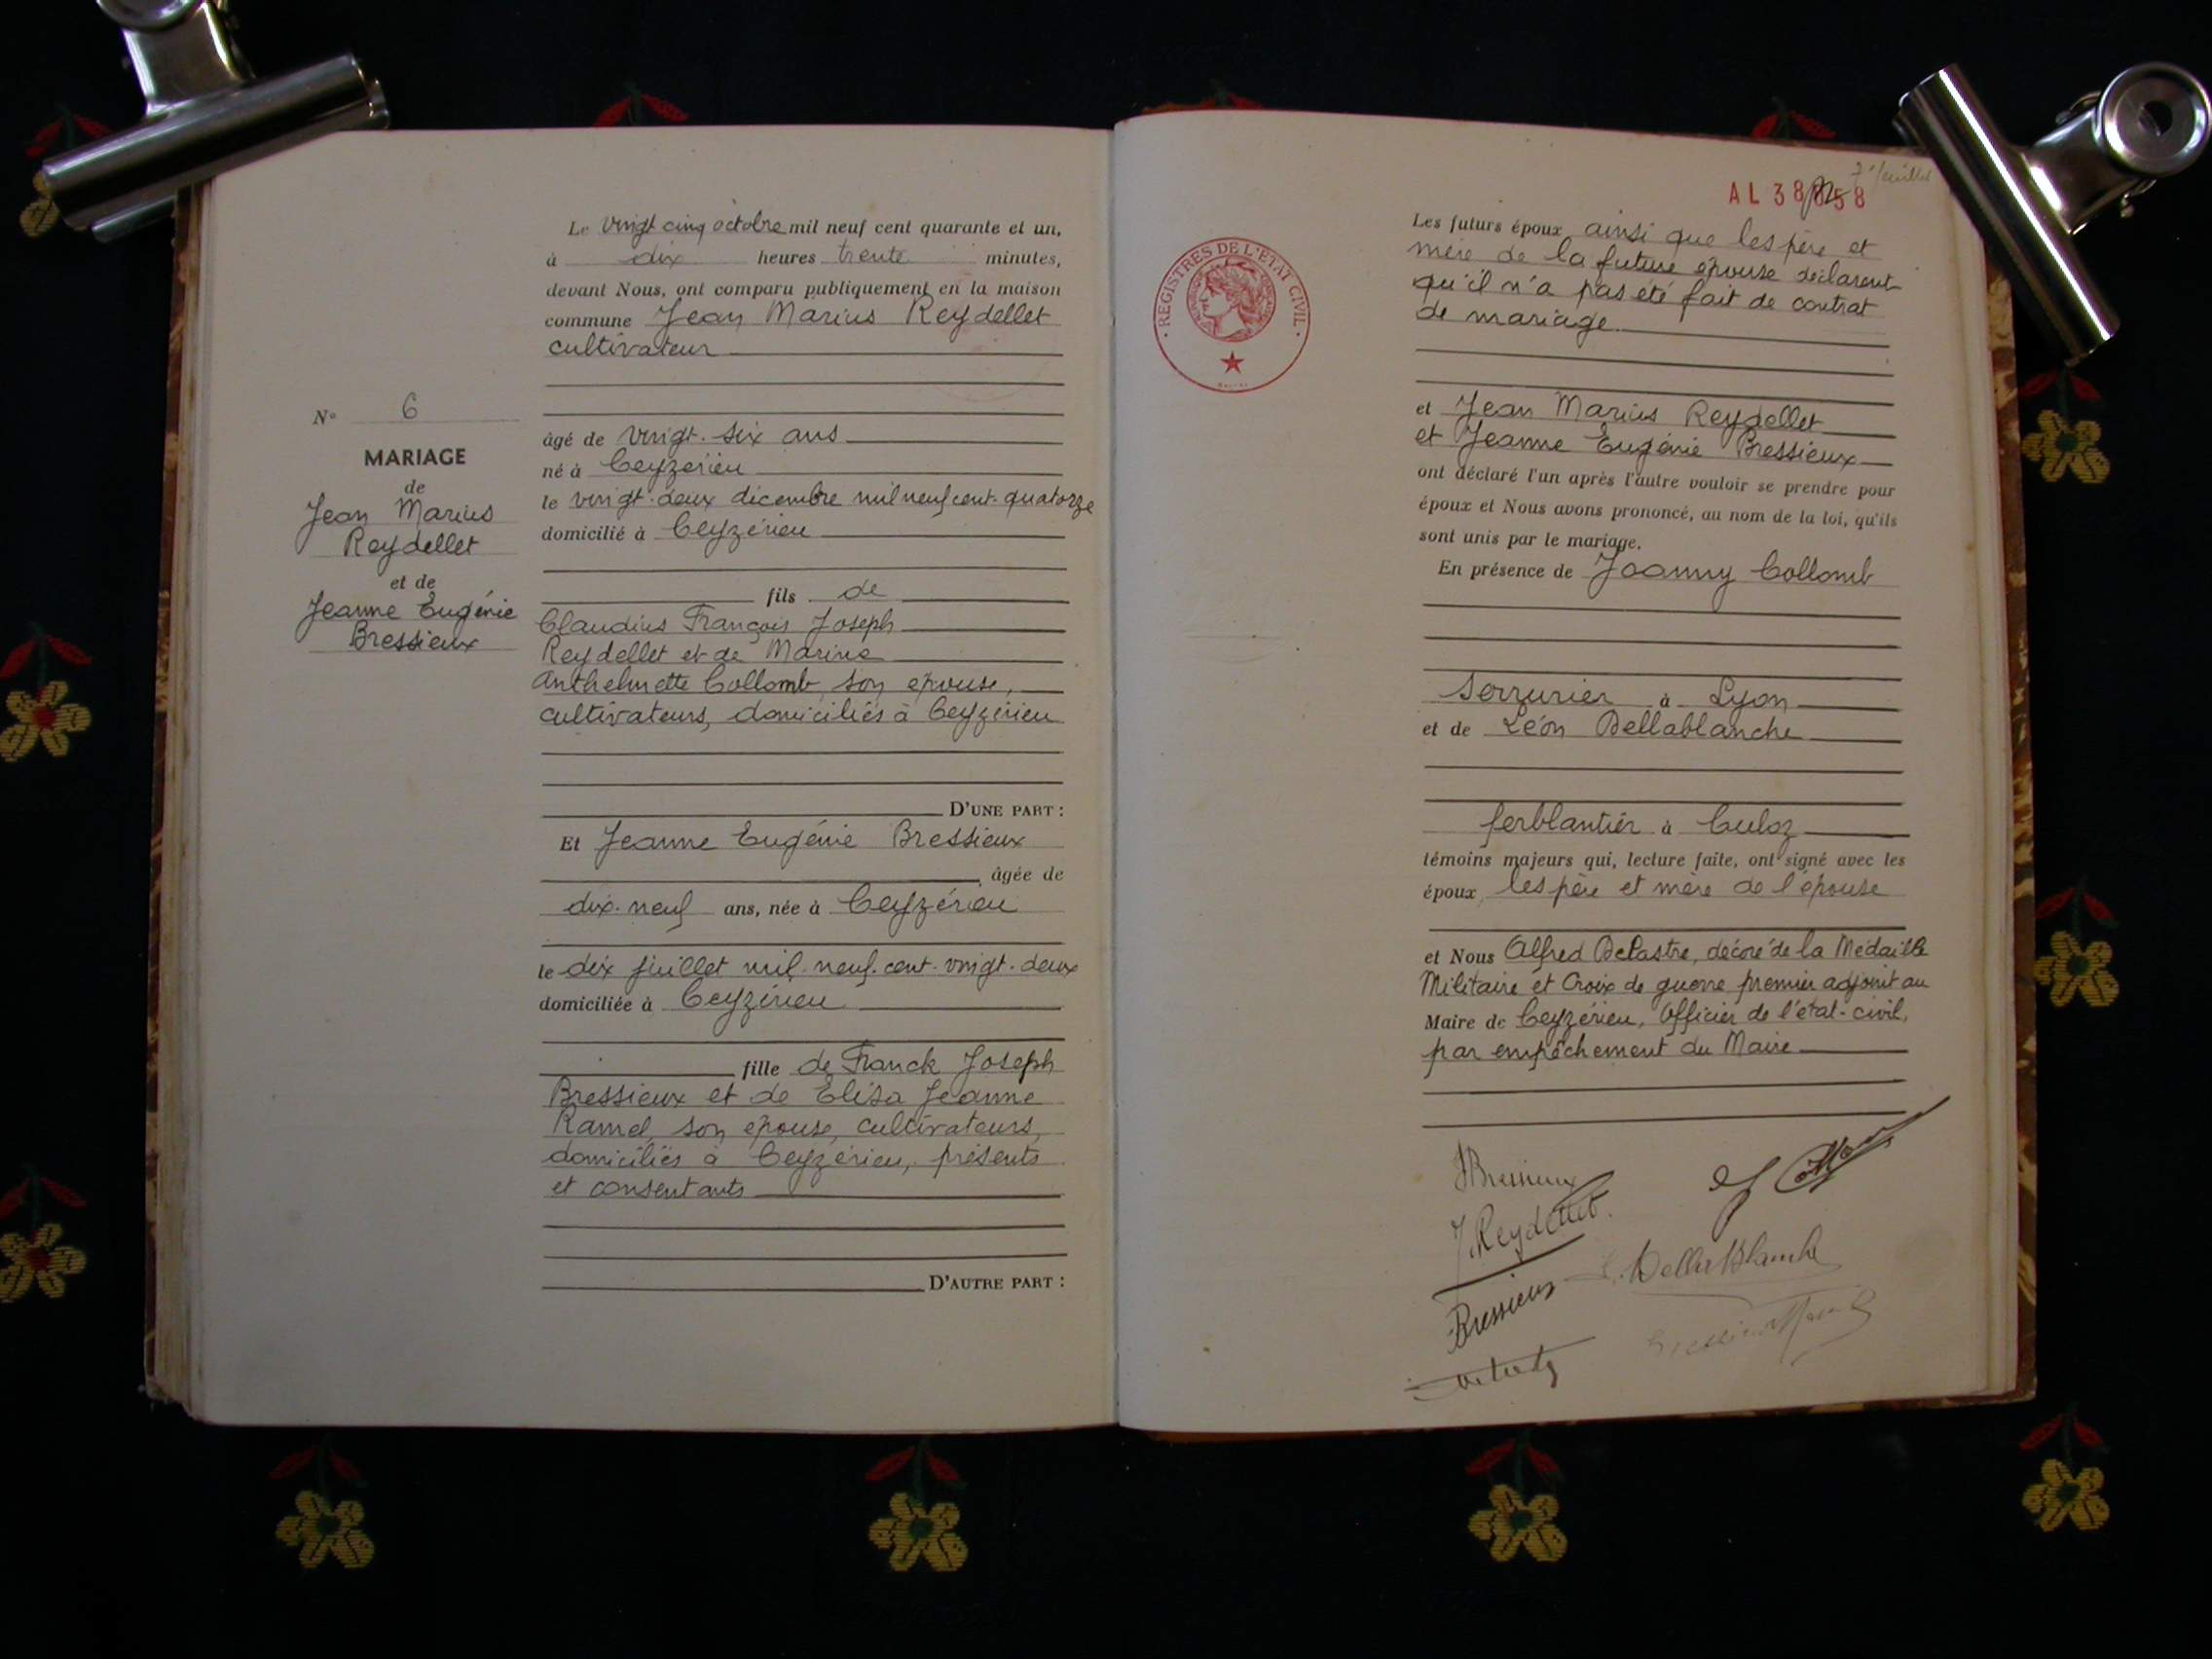 Le vingt cinq octobre mil neuf cent quarante et un,
à dix heures trente minutes,
devant Nous, ont comparu publiquement en la maison
commune Jean Marius Reydellet
cultivateur
N° 6
MARIAGE
de
Jean Marius
Reydellet
et de
Jeanne Eugénie
Bressieux
âgé de vingt-six ans
né à Ceyzérieu
le vingt-deux décembre mil neuf cent-quatorze
domicilié à Ceyzérieu
fils de
Claudius François Joseph
Reydellet et de Marine
Anthelmette Collomb, son épouse,
cultivateurs, domiciliés à Ceyzérieu
D'UNE PART :
Et Jeanne Eugénie Bressieux
âgée de
dix-neuf ans, née à Ceyzérieu
le dix juillet mil-neuf-cent-vingt-deux
domiciliée à Ceyzérieu
fille de Franck Joseph
Bressieux et de Elisa Jeanne
Ramel, son épouse, cultivateurs,
domiciliés à Ceyzérieu, présents
et consentants
D'AUTRE PART :
7e feuillet
AL 38 58
REGISTRES DE L'ETAT CIVIL
Les futurs époux ainsi que les père et
mère de la future épouse déclarent
qu'il n'a pas été fait de contrat
de mariage.
et Jean Marius Reydellet
et Jeanne Eugénie Bressieux
ont déclaré l'un après l'autre vouloir se prendre pour
époux et Nous avons prononcé, au nom de la loi, qu'ils
sont unis par le mariage.
En présence de Joanny Collomb
serrurier à Lyon
et de Léon Dellablanche
ferblantier à Culoz
témoins majeurs qui, lecture faite, ont signé avec les
époux, les père et mère de l'épouse
et Nous Alfred Delastre, décoré de la Médaille
Militaire et Croix de guerre premier adjoint au
Maire de Ceyzérieu, Officier de l'état-civil,
par empêchement du Maire
JBressieux
J. Reydellet
Bressieux
L. DellaBlanche